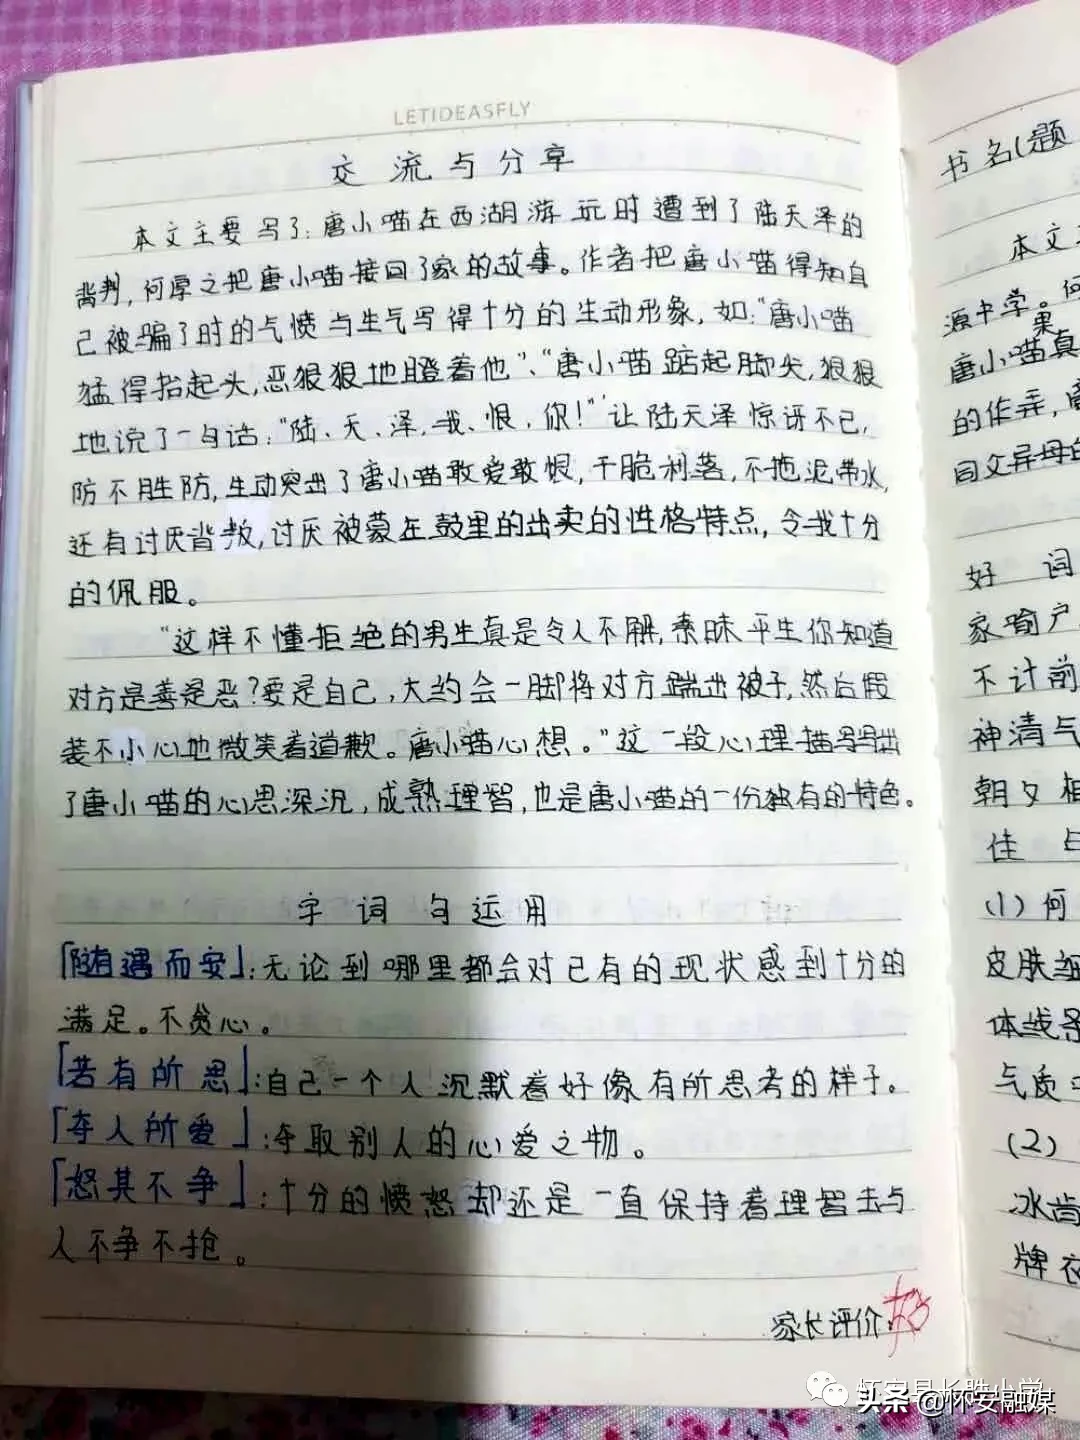 LETIDEASFLY
交流与分享
本文主要写了:唐小喵在西湖游玩时遭到了陆天泽的
背判,何厚之把唐小喵接回了家的故事。作者把唐小喵得知自
己被骗了时的气愤与生气写得十分的生动形象,如:“唐小喵
猛得抬起头,恶狠狠地瞪着他”、“唐小喵踮起脚尖,狠狠
地说了一句话:“陆、天、泽,我、恨、你!”让陆天泽惊讶不已,
防不胜防,生动突出了唐小喵敢爱敢恨,干脆利落,不拖泥带水,
还有讨厌背叛,讨厌被蒙在鼓里的出卖的性格特点,令我十分
的佩服。
“这样不懂拒绝的男生真是令人不解,素昧平生你知道
对方是善是恶?要是自己,大约会一脚将对方踹出被子,然后假
装不小心地微笑着道歉。唐小喵心想。”这一段心理描写写出
了唐小喵的心思深沉,成熟理智,也是唐小喵的一份独有的特色。
字词句运用
「随遇而安」:无论到哪里都会对己有的现状感到十分的
满足。不贪心。
「若有所思」:自己一个人沉默着好像有所思考的样子。
「夺人所爱」:夺取别人的心爱之物。
「怒其不争」:十分的愤怒却还是一直保持着理智去与
人不争不抢。
家长评价:好
书名(题
本文
源中学。何
果
唐小喵真
的作弄,
同父异母的
好词
家喻户
不计前
神清气
朝夕相
佳与
(1)何
皮肤细
体线条
气质
(2)
冰肯
牌衣
怀安县长胜小学
头条@怀安融媒